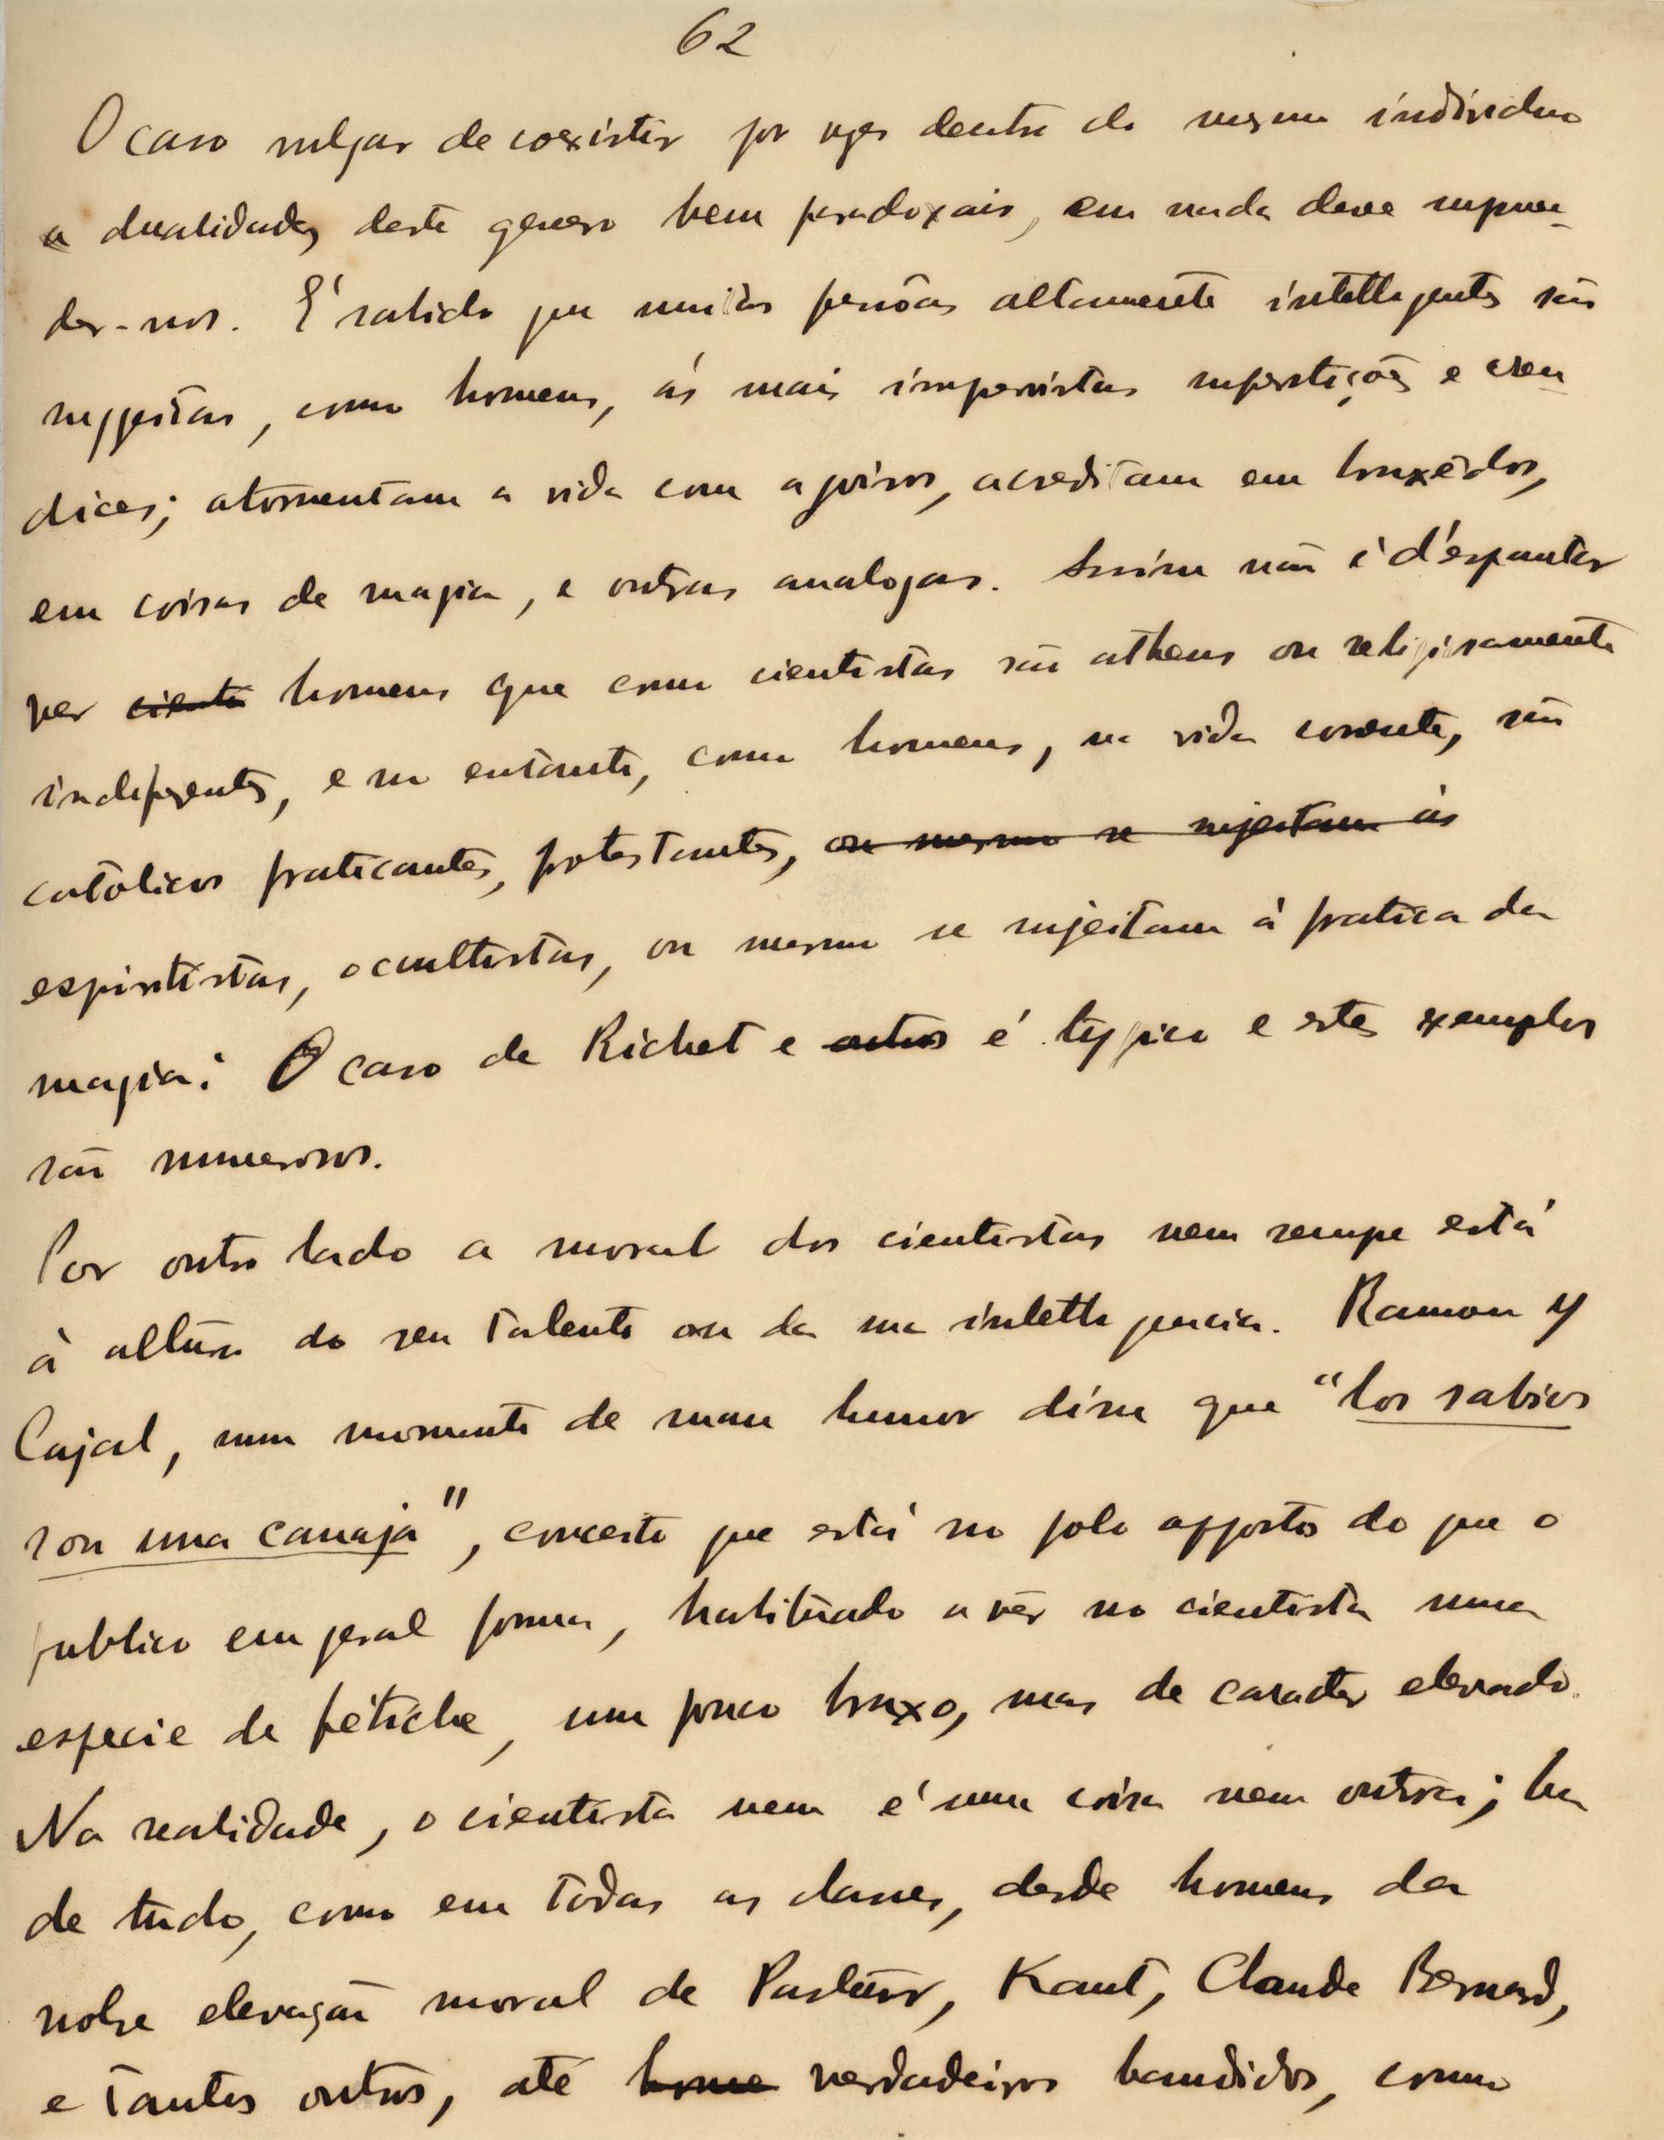 62
O caso vulgar de coexistir por vezes dentro do mesmo individuo
a dualidades deste genero bem paradoxais, em nada deve surpreen-
der-nos. É sabido que muitas pessôas altamente intelligentes são
suggeitas, como homens, ás mais imprevistas superstições e cren
dices; atormentam a vida com agoiros, acreditam em bruxêdos,
em coisas de magia, e outras analogas. Assim não é d'espantar
ver ciente homens que como cientistas são atheus ou religiosamente
indiferentes, e no entanto, como homens, na vida corrente, são
católicos praticantes, protestantes, ou mesmo se sujeitam ás
espiritistas, ocultistas, ou mesmo se sujeitam á pratica da
magia. O caso de Richet e outros é typico e estes exemplos
são numerosos.
Por outro lado a moral dos cientistas nem sempre está
à altura do seu talento ou da sua intelligencia. Ramon y
Cajal, num momento de mau humor disse que "los sabios
son una canaja", conceito que está no polo opposto do que o
publico em geral forma, habituado a vêr no cientista uma
especie de fétiche, um pouco bruxo, mas de caracter elevado.
Na realidade, o cientista nem é uma coisa nem outra; ha
de tudo, como em todas as classes, desde homens da
nobre elevação moral de Pasteur, Kant, Claude Bernard,
e tantos outros, até home verdadeiros bandidos, como